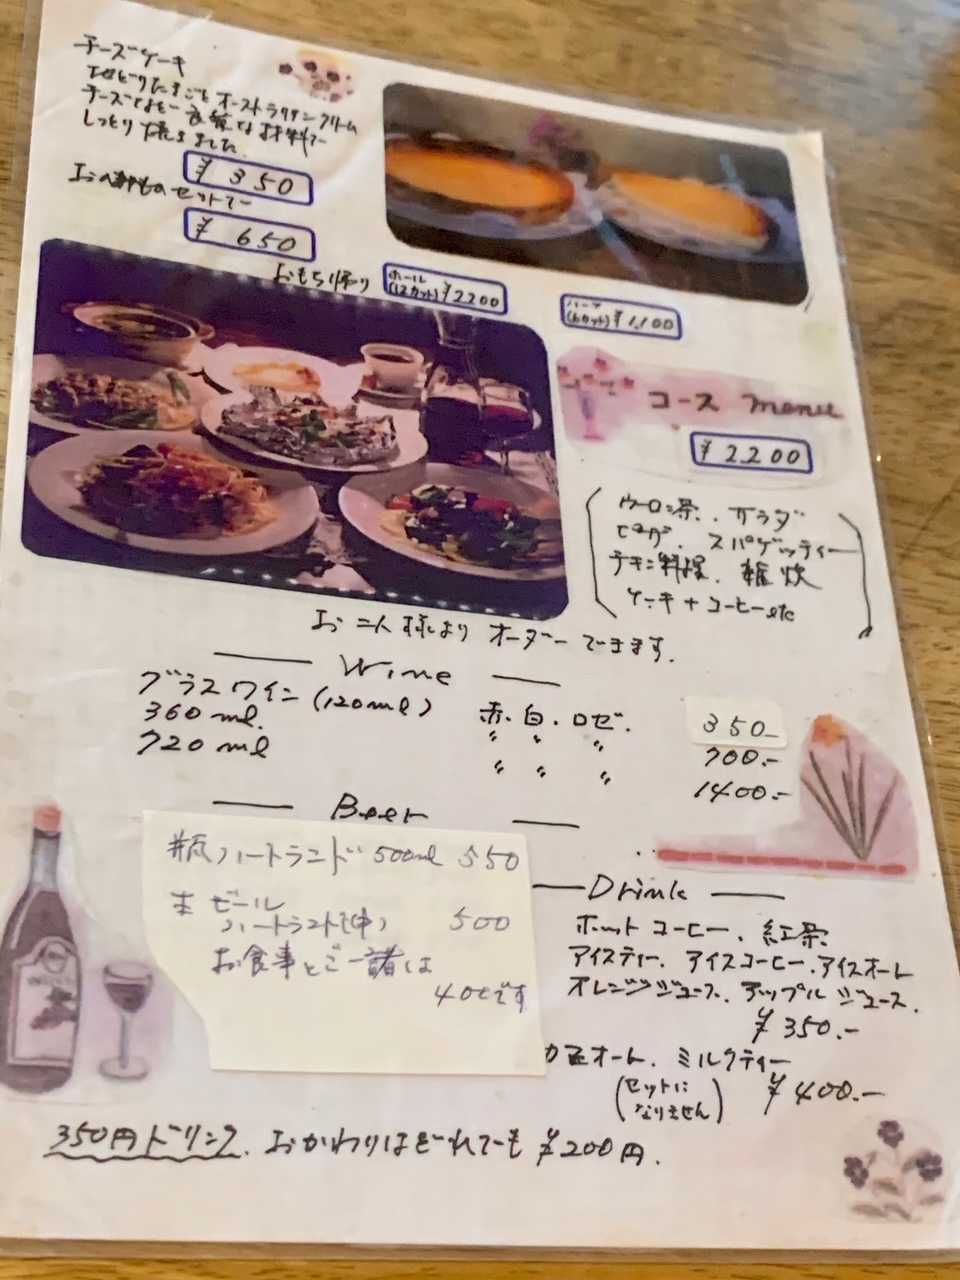 チーズケーキ
オーストラリアンクリーム
チーズなど良質な材料で
しっとり焼きました
¥350
お飲みものセットで
¥650
おもち帰り
ホール
(12カット) ¥2200
ハーフ
(6カット) ¥1,100
コース menu
¥2200
ウーロン茶、サラダ
ピザ、スパゲッティー
チキン料理、雑炊
ケーキ+コーヒーetc
お二人様より オーダーできます。
Wine
グラスワイン(120ml) 赤.白.ロゼ. 350-
360ml. 〃 〃 〃 700.-
720ml 〃 〃 〃 1400.-
Beer
瓶ハートランド 500ml 550
生ビール
ハートランド(中) 500
お食事とご一諸は
400です
Drink
ホットコーヒー、紅茶
アイスティー、アイスコーヒー、アイスオーレ
オレンジジュース、アップルジュース、
¥350.-
カフェオーレ、ミルクティー
(セットに
なりません) ¥400.-
350円ドリンク、おかわりはどれでも¥200円.